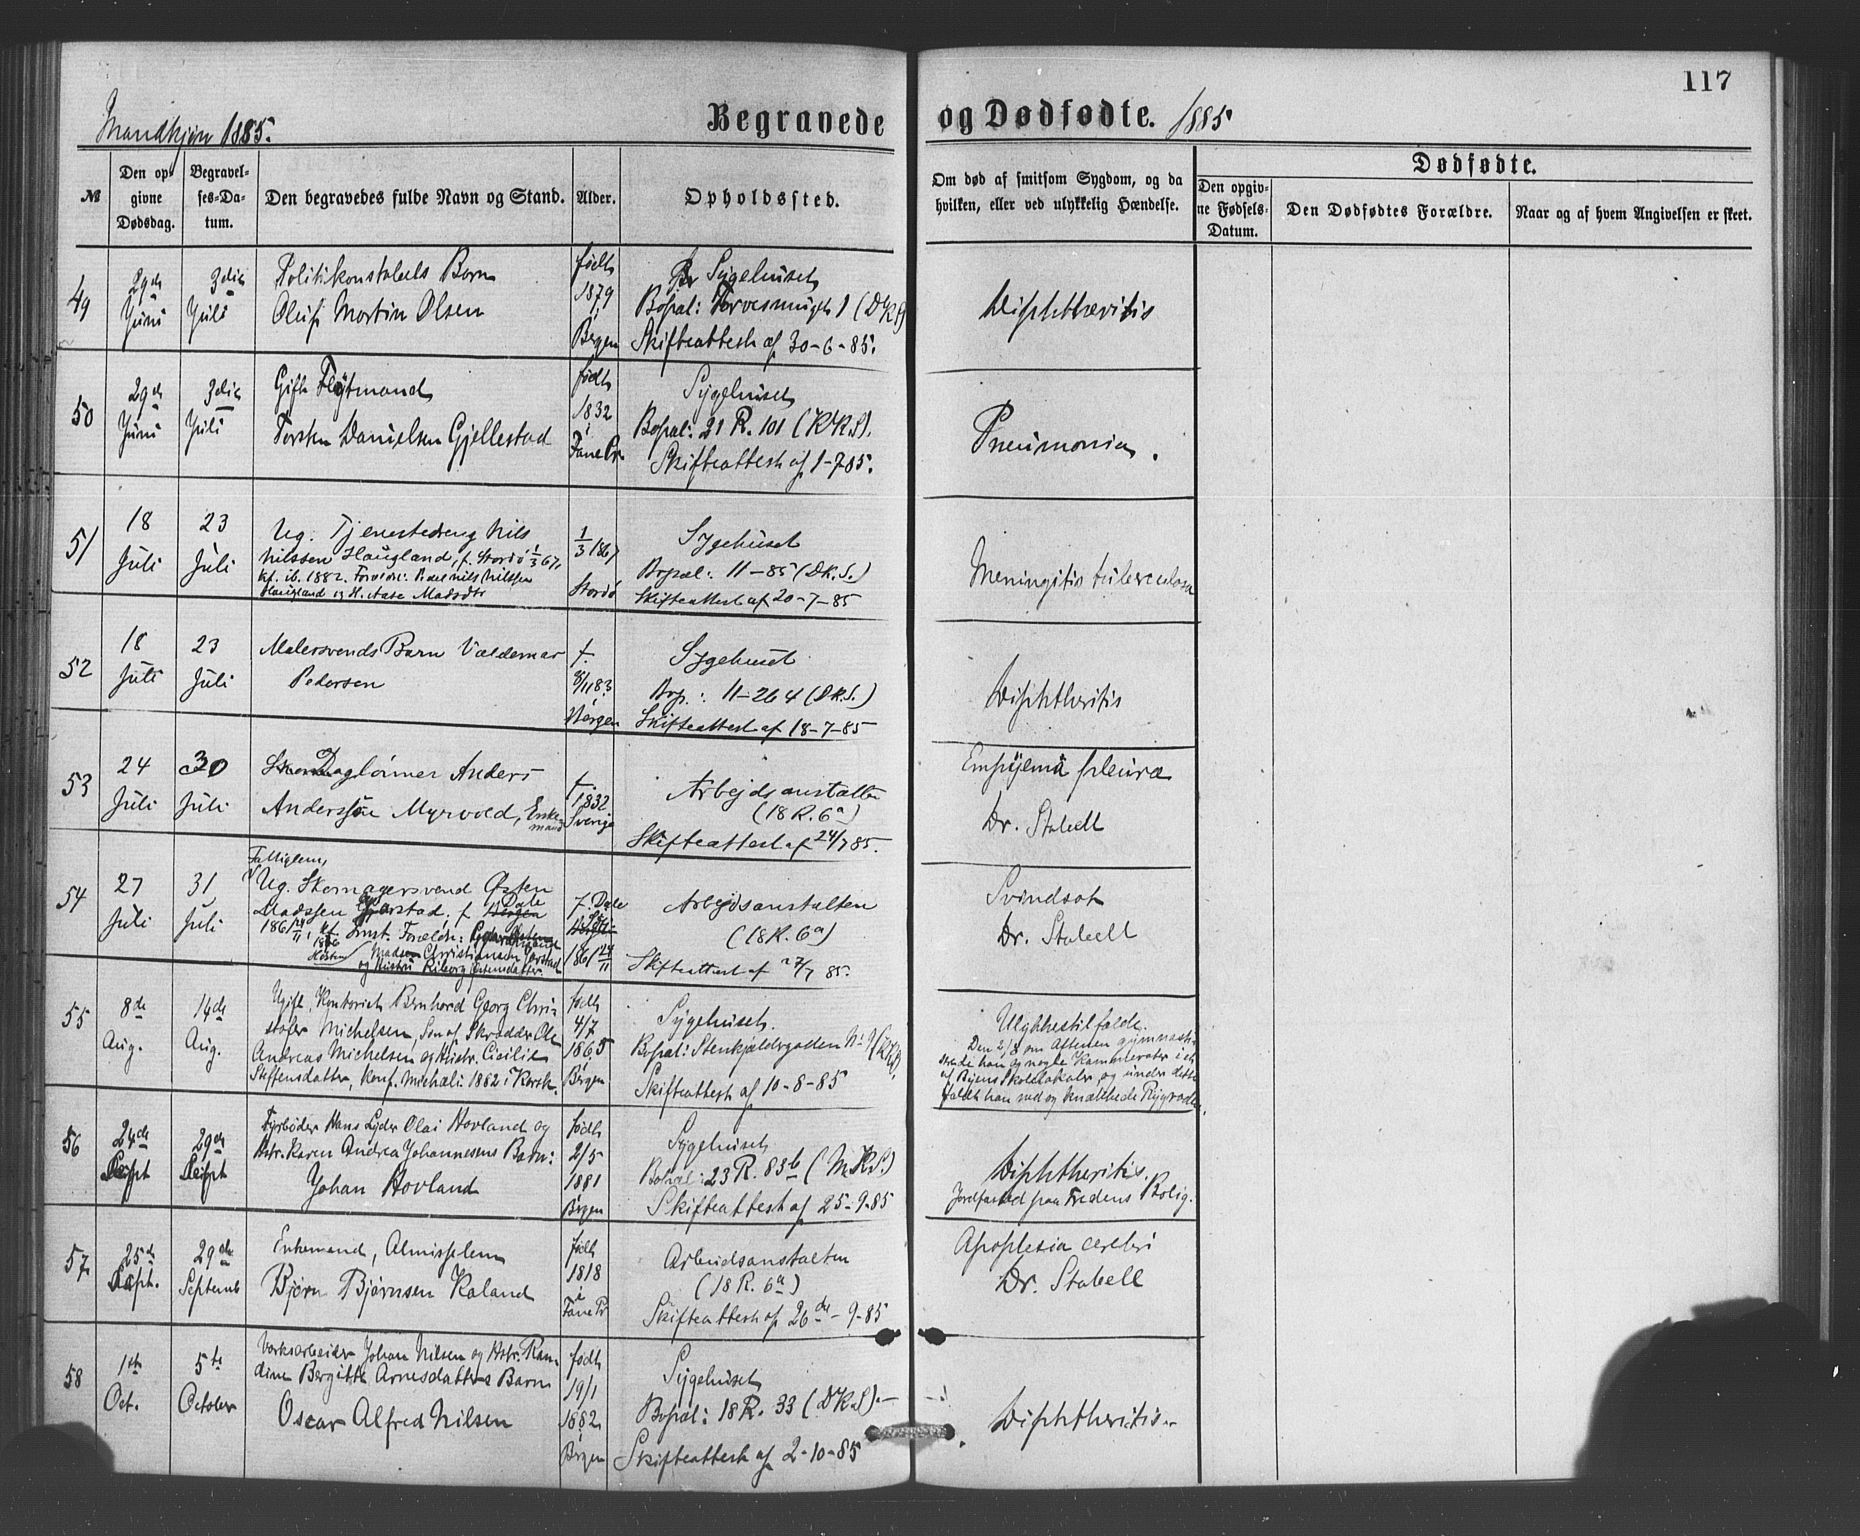 117
Mandkjøn 1885.
Begravede og Dødfødte. 1885
№
Den opgivne Dødsdag.
Begravelses-Datum.
Den begravedes fulde Navn og Stand.
Alder.
Opholdssted.
Om død af smitsom Sygdom, og da hvilken, eller ved ulykkelig Hændelse.
Dødfødte.
Den opgivne Fødsels-Datum.
Den Dødfødtes Forældre.
Naar og af hvem Angivelsen er skeet.
49
29de Juni
3die Juli
Politikonstabels Barn
Oluf Martin Olsen
født 1879 i Bergen
Sygehuset
Bopæl: Torvesmuget 1 (DKS)
Skifteattest af 30-6-85.
Diphtheritis
50
29de Juni
3die Juli
Gift Fløtmand
Torsten Danielsen Gjellestad
født 1832 i Fane Pr
Sygehuset
Bopæl: 21 R. 101 (KKS).
Skifteattest af 1-7 85.
Pneumonia.
51
18 Juli
23 Juli
Ug. Tjenestedreng Nils
Nilssen Haugland, f. Stordö 1/3 67,
kf. ib. 1882. Forældre: Nils Nilssen
Haugland og H. Aase Madsdtr
1/3 1867
Stordö
Sygehuset
Bopæl: 11-85 (DK.S.)
Skifteattest af 20-7-85
Meningitis tuberculosa
52
18 Juli
23 Juli
Malersvends Barn Valdemar
Pedersen
f. 8/11 83
Bergen
Sygehuset
Bop.: 11-264 (DK.S.)
Skifteattest af 18-7-85
Diphtheritis
53
24 Juli
30 Juli
Daglönner Anders
Anderssön Myrvold, Enkemand
f. 1832
Sverige
Arbejdsanstalten
(18 R. 6a)
Skifteattest af 24/7 85.
Empyema pleura
Dr. Stabell
54
27 Juli
31 Juli
Fattiglem,
Ug. Skomagersvend Östen
Madssen Gjerstad, f. Dale
1861 24/11, kf. Forældre:
Madsen Christiansen
og Hustru Riborg Östensdatter
f. Dale
1861 24/11
Arbejdsanstalten
(18 R. 6a)
Skifteattest af 27/7 85.
Svindsot
Dr. Stabell
55
8de Aug.
14de Aug.
Ugift, Kontorist Bernhard Georg Christofer
Michelsen, Søn af Skrædder Ole
Andreas Michelsen og Hustr. Cicilie
Steffensdatter, Konf. Michaeli 1882 i Korsk.
født 4/7 1865 i Bergen
Sygehuset.
Bopæl: Stenkjeldergaden No 9 (KKS).
Skifteattest af 10-8-85
Ulykkestilfælde.
Den 2/8 om Aftenen gymnastiserede
han og nogle Kammerater i et
af Byens Skolelokaler, og under dette
faldt han ned og knækkede Rygraden.
56
24de Sept
29de Sept
Fyrbøder Hans Lyder Olai Hovland og
Hstr. Karen Andrea Johannesens Barn:
Johan Hovland
født 2/5 1881 Bergen
Sygehuset
Bopæl: 23 R. 83b (M.K.S.)
Skifteattest af 25-9-85
Diphtheritis.
Jordfæsted paa Fredens Bolig.
57
25de Sept.
29de Septemb
Enkemand, Almisselem
Bjørn Bjørnsen Kaland
født 1818 i Fane Pr
Arbeidsanstalten
(18 R. 6a)
Skifteattest af 26de-9-85
Apoplexia cerebri
Dr. Stabell
58
1ste Oct.
5te October
Værksarbeider Johan Nilsen og Hstr. Randine
Bergitte Arnesdatters Barn
Oscar Alfred Nilsen
født 19/1 1882 i Bergen
Sygehuset
Bopæl: 18 R. 33 (DK.S).
Skifteattest af 2-10-85
Diphtheritis